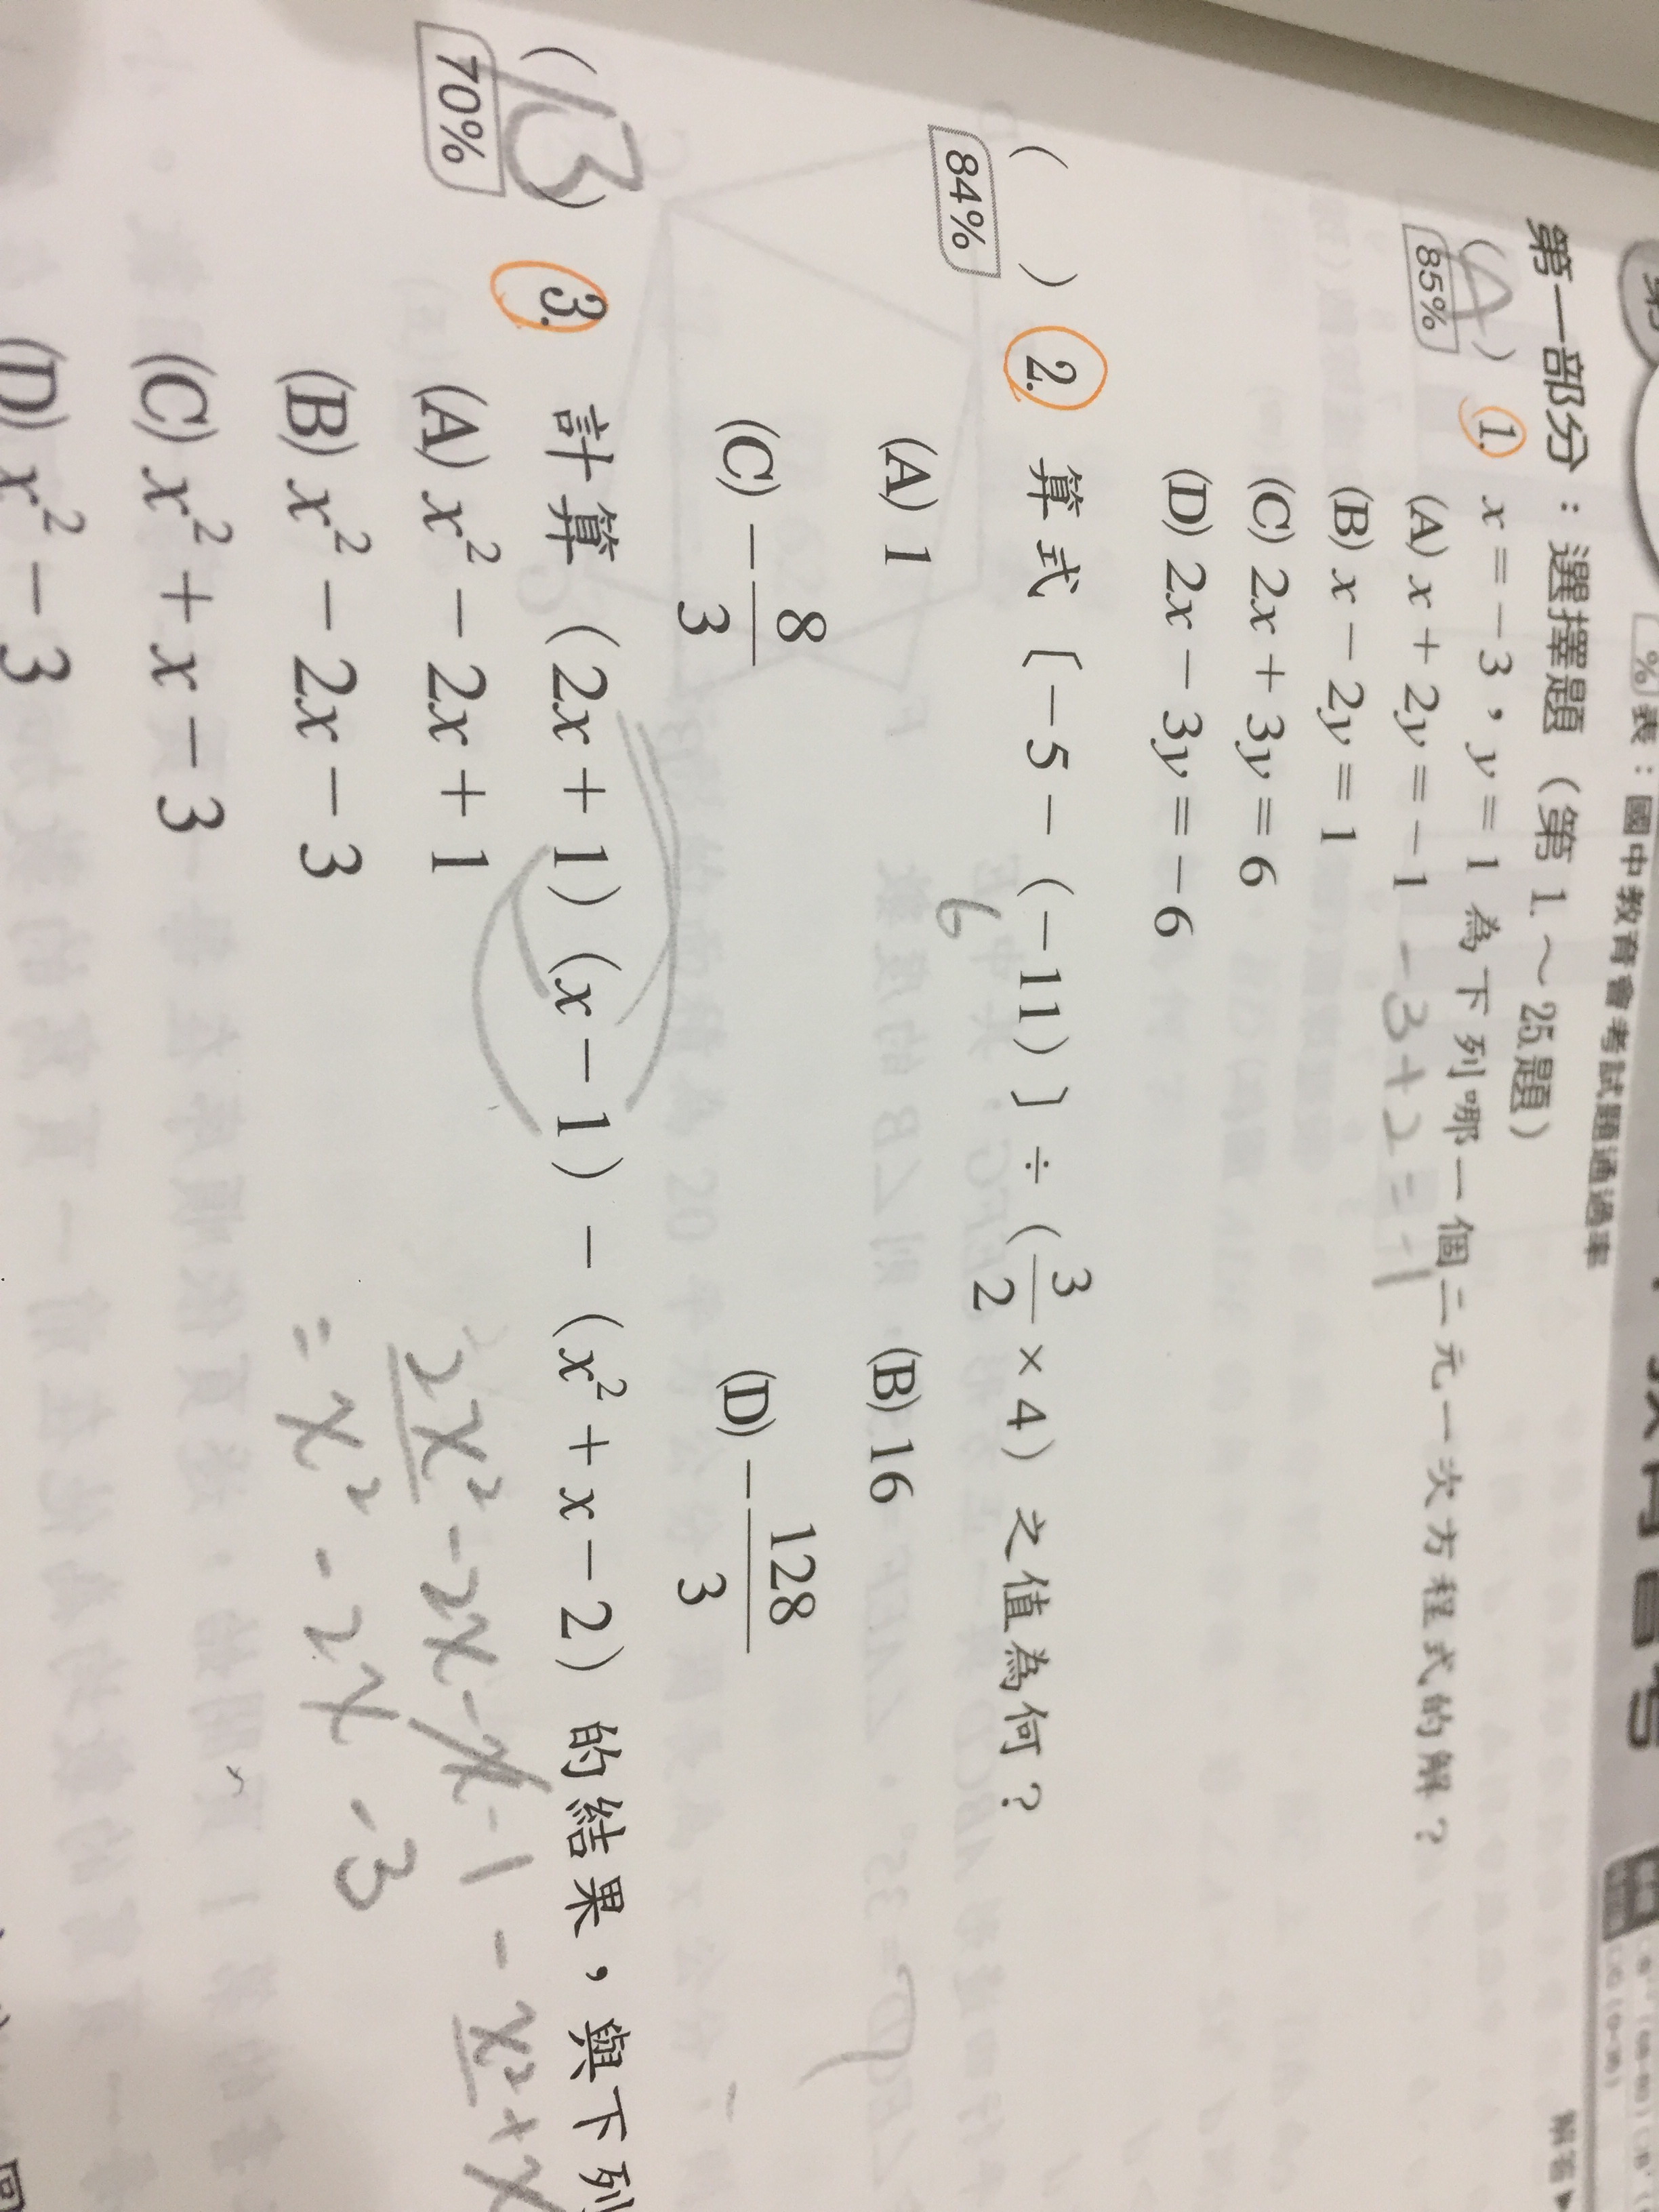 %表：國中教育會考試題通過率
解答▼
第一部分：選擇題（第 1.～25題）
(A) 1. x = －3，y = 1 為下列哪一個二元一次方程式的解？
85%
(A) x + 2y = －1 －3+2=－1
(B) x － 2y = 1
(C) 2x + 3y = 6
(D) 2x － 3y = －6
( ) 2. 算式〔－5－(－11)〕÷(3/2×4) 之值為何？
84%
6
(A) 1 (B) 16
(C) －8/3 (D) －128/3
(B) 3. 計算 (2x + 1)(x － 1) － (x² + x － 2) 的結果，與下列
70%
(A) x² － 2x + 1 2x²－2x－x－1－x²+x
(B) x² － 2x － 3 = x²－2x－3
(C) x² + x － 3
(D) x² － 3